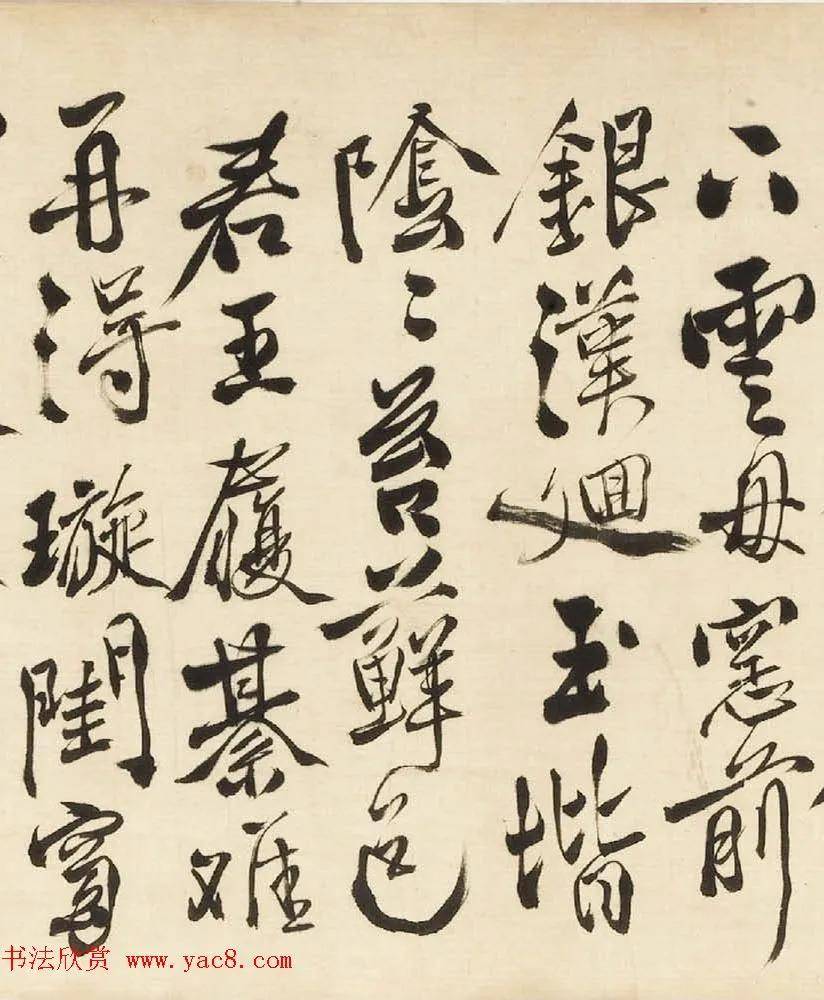 下雲母窓前
銀漢廻玉堦
陰〻苔蘚色
君王履綦難
再得璇閨窅
书法欣赏 www.yac8.com